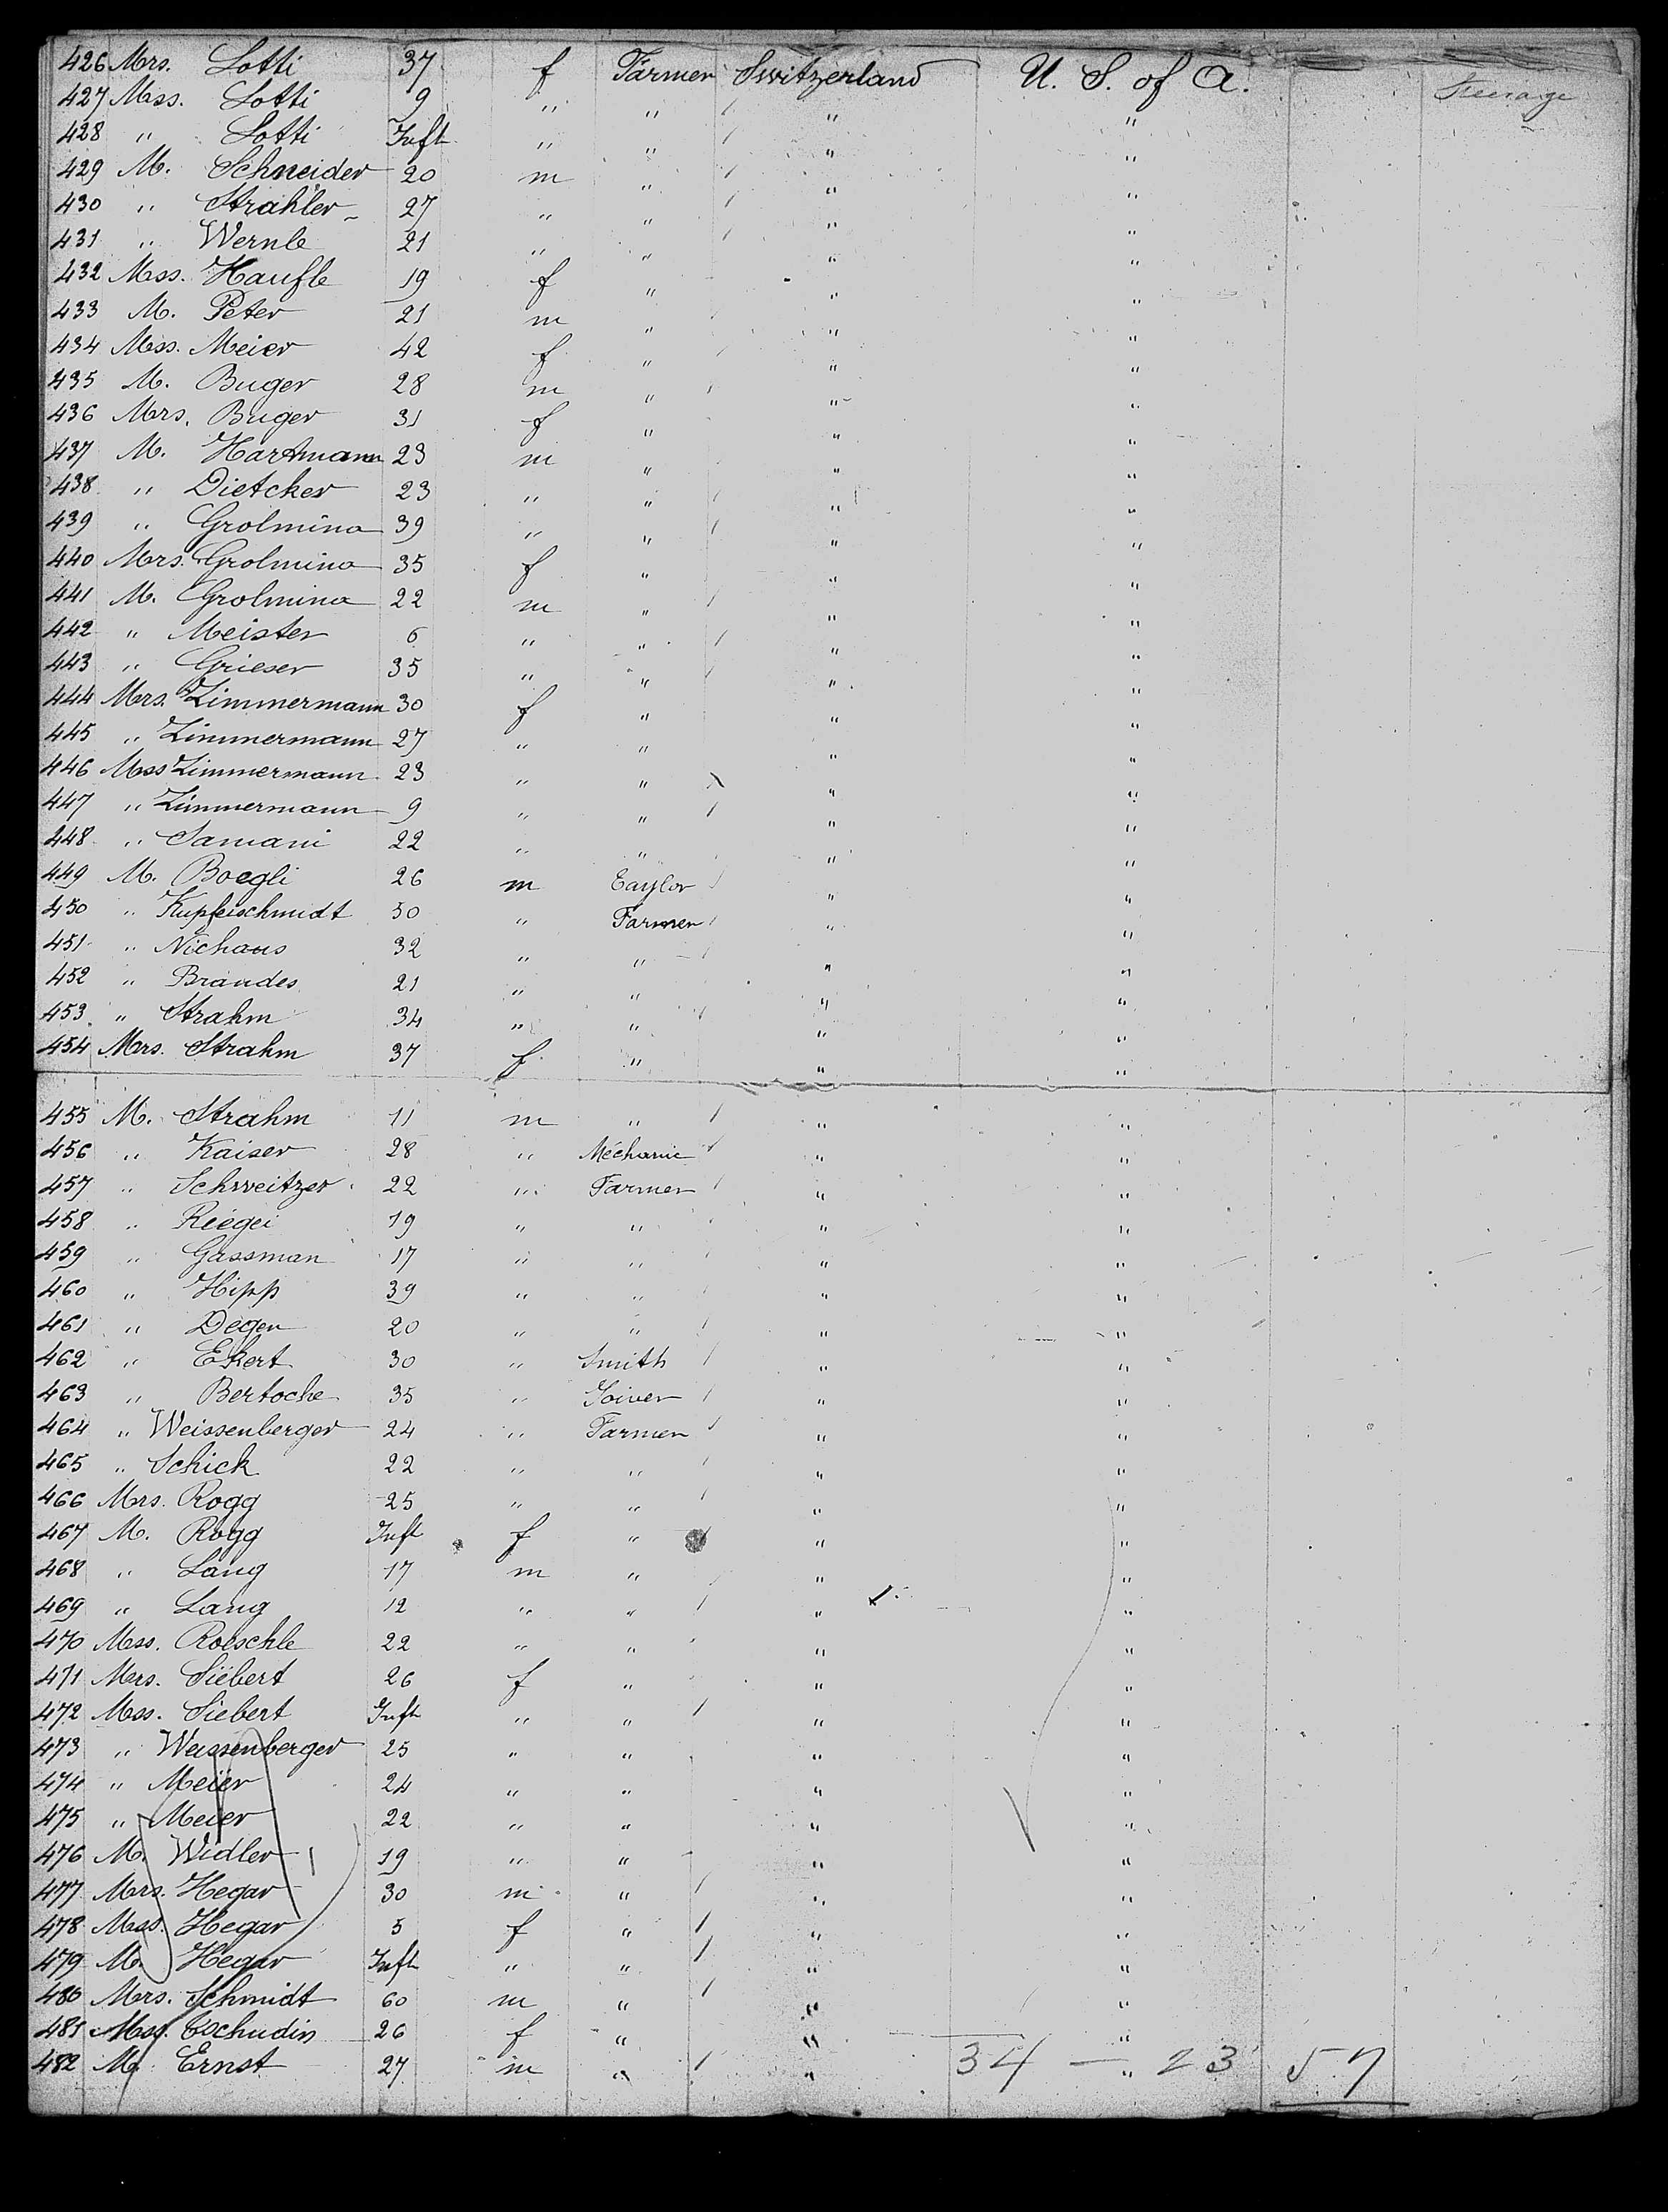 426 Mrs. Lotti 37 f Farmer Switzerland U. S. of A. Steerage
427 Mss. Lotti 9 " " " "
428 " Lotti Inft " " " "
429 M. Schneider 20 m " " "
430 " Strahler 27 " " " "
431 " Wernle 21 " " " "
432 Mss. Haufle 19 f " " "
433 M. Peter 21 m " " "
434 Mss. Meier 42 f " " "
435 M. Buger 28 m " " "
436 Mrs. Buger 31 f " " "
437 M. Hartmann 23 m " " "
438 " Dietcker 23 " " " "
439 " Grolmina 39 " " " "
440 Mrs. Grolmina 35 f " " "
441 M. Grolmina 22 m " " "
442 " Meister 6 " " " "
443 " Grieser 35 " " " "
444 Mrs. Zimmermann 30 f " " "
445 " Zimmermann 27 " " " "
446 Mss Zimmermann 23 " " " "
447 " Zimmermann 9 " " " "
448 " Samani 22 " " " "
449 M. Boegli 26 m Taylor " "
450 " Kupfeischmidt 50 " Farmer " "
451 " Nichaus 32 " " " "
452 " Brandes 21 " " " "
453 " Strahm 34 " " " "
454 Mrs. Strahm 37 f " " "
455 M. Strahm 11 m " " "
456 " Kaiser 28 " Mechanic " "
457 " Schweitzer 22 " Farmer " "
458 " Riegei 19 " " " "
459 " Gassman 17 " " " "
460 " Hipp 39 " " " "
461 " Degen 20 " " " "
462 " Ekert 30 " Smith " "
463 " Bertoche 35 " Joiner " "
464 " Weissenberger 24 " Farmer " "
465 " Schick 22 " " " "
466 Mrs. Rogg 25 " " " "
467 M. Rogg Inft f " " "
468 " Lang 17 m " " "
469 " Lang 12 " " " "
470 Mss. Roeschle 22 " " " "
471 Mrs. Siebert 26 f " " "
472 Mss. Siebert Inft " " " "
473 " Weissenberger 25 " " " "
474 " Meier 24 " " " "
475 " Meier 22 " " " "
476 M. Widler 19 " " " "
477 Mrs. Hegar 30 m " " "
478 Mss. Hegar 5 f " " "
479 M. Hegar Inft " " " "
480 Mrs. Schmidt 60 m " " "
481 Mss. Tschudin 26 f " " "
482 M. Ernst 27 m " " " 34 — 23 57